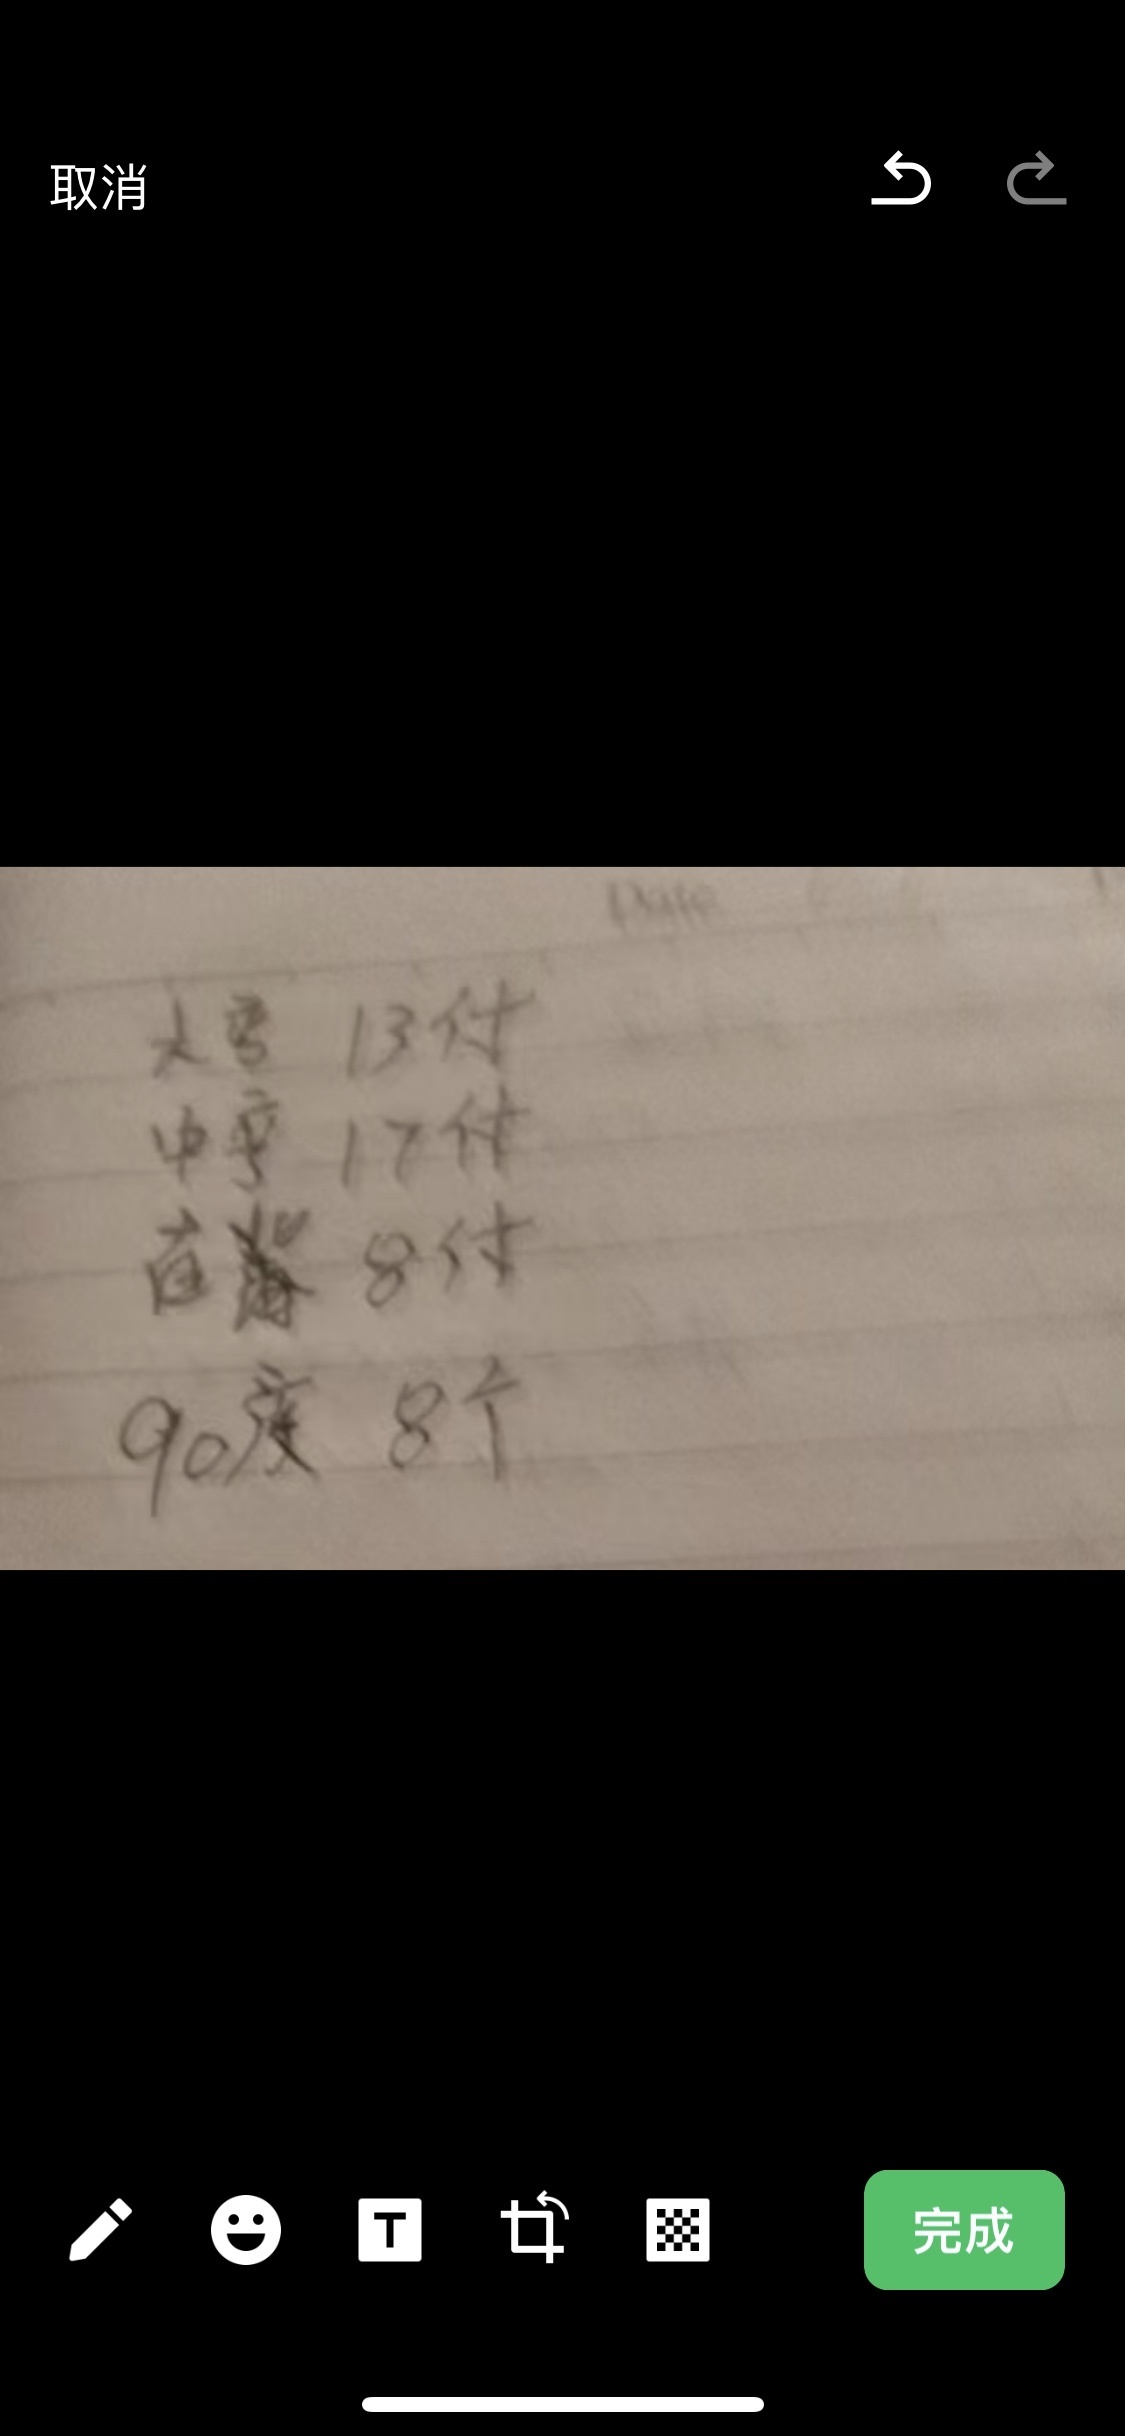 取消
Date
大弯 13付
中弯 17付
直 8付
90度 8个
完成